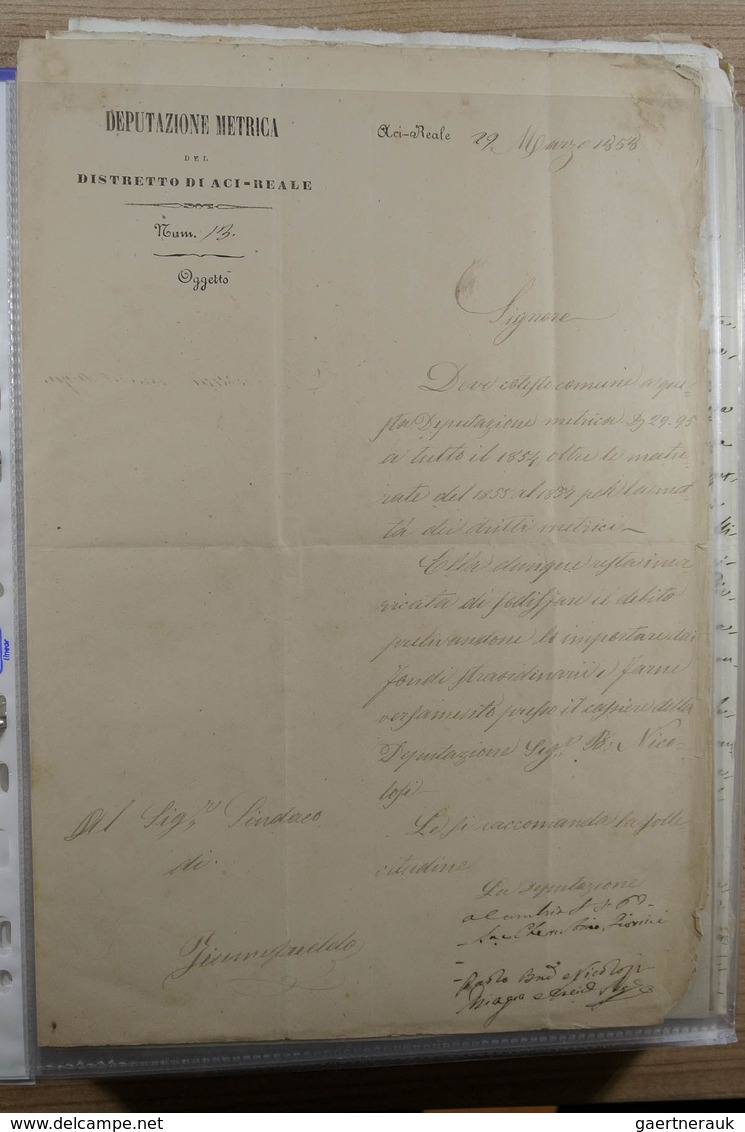 DEPUTAZIONE METRICA
DEL
DISTRETTO DI ACI=REALE
Num. 13.
Oggetto
Aci-Reale 29 Marzo 1858
Signore
Deve cotesto comune a que-
sta Deputazione metrica D 29.95
a tutto il 1854, oltre le matu-
rate del 1855 al 1857 per la me-
tà dei dritti metrici
Ella dunque resta inca
ricata di sodisfare il debito
prelivandone lo importare dai
fondi straordinarii e farne
versamento presso il cassiere della
Deputazione Sig.r B. Nico-
losi
Le si raccomanda la solle
citudine
La Deputazione
Al Sig.r Sindaco
di
linear
gaertnerauk